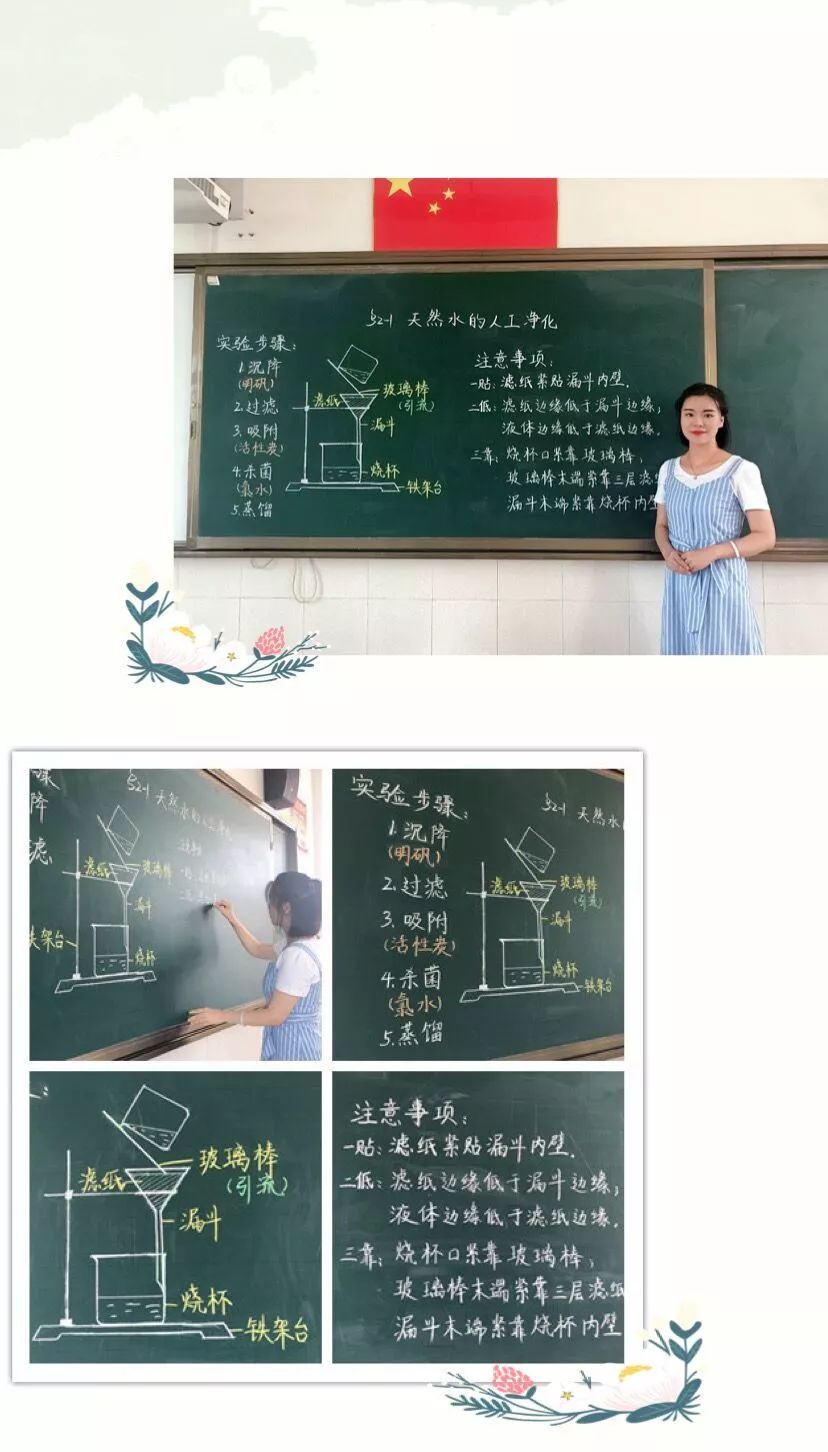 §2-1 天然水的人工净化
实验步骤:
1.沉降
(明矾)
2.过滤
3.吸附
(活性炭)
4.杀菌
(氯水)
5.蒸馏
滤纸
玻璃棒
(引流)
漏斗
烧杯
铁架台
注意事项:
一贴:滤纸紧贴漏斗内壁.
二低:滤纸边缘低于漏斗边缘;
液体边缘低于滤纸边缘.
三靠:烧杯口紧靠玻璃棒;
玻璃棒末端紧靠三层滤
漏斗末端紧靠烧杯内壁
骤
降
滤
§2-1 天然水的人工净化
滤纸
玻璃棒
漏斗
架台
烧杯
实验步骤:
§2-1 天然水
1.沉降
(明矾)
2.过滤
3.吸附
(活性炭)
4.杀菌
(氯水)
5.蒸馏
滤纸
玻璃棒
(引流)
漏斗
烧杯
铁架台
滤纸
玻璃棒
(引流)
漏斗
烧杯
铁架台
注意事项:
一贴:滤纸紧贴漏斗内壁.
二低:滤纸边缘低于漏斗边缘;
液体边缘低于滤纸边缘.
三靠:烧杯口紧靠玻璃棒;
玻璃棒末端紧靠三层滤纸
漏斗末端紧靠烧杯内壁